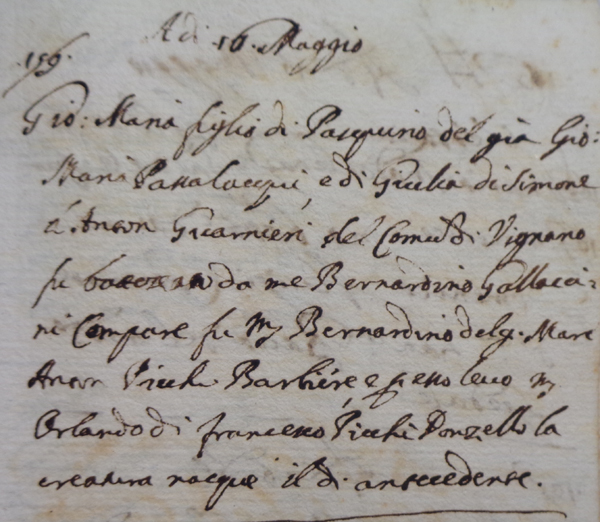 Adi 16. Maggio
159.
Gio: Maria figlio di Pasquino del già Gio:
Maria Passalacqui, e di Giulia di Simone
d'Anton Guarnieri del Comu: di Vignano
fu da me Bernardino Gallacci-
ni Compare fu Bernardino del q. Marc
Anton Picchi Barbiere e lo levò
Orlando di Francesco Picchi Donzello la
creatura nacque il dì antecedente.